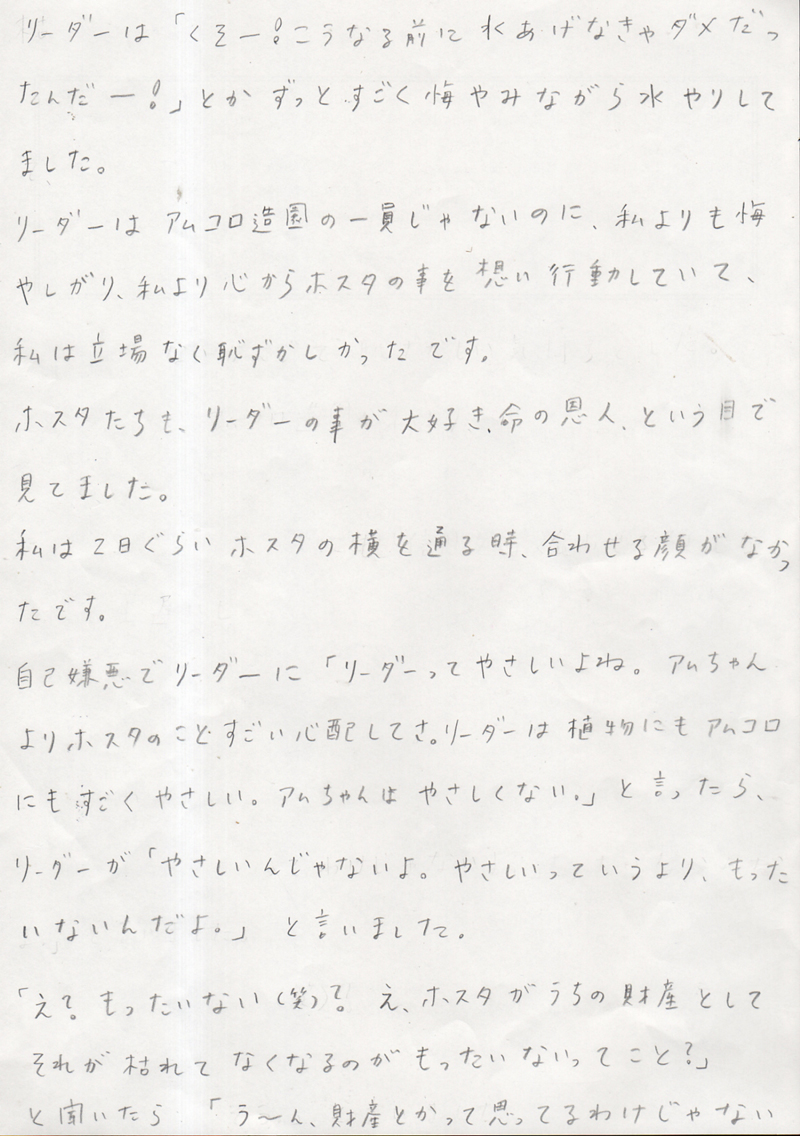 リーダーは「くそー!こうなる前に水あげなきゃダメだっ
たんだー!」とかずっとすごく悔やみながら水やりして
ました。
リーダーはアムコロ造園の一員じゃないのに、私よりも悔
やしがり、私より心からホスタの事を想い行動していて、
私は立場なく恥ずかしかったです。
ホスタたちも、リーダーの事が大好き、命の恩人、という目で
見てました。
私は2日ぐらいホスタの横を通る時、合わせる顔がなかっ
たです。
自己嫌悪でリーダーに「リーダーってやさしいよね。アムちゃん
よりホスタのことすごい心配してさ。リーダーは植物にもアムコロ
にもすごくやさしい。アムちゃんはやさしくない。」と言ったら、
リーダーが「やさしいんじゃないよ。やさしいっていうより、もった
いないんだよ。」と言いました。
「え?もったいない(笑)?え、ホスタがうちの財産として
それが枯れてなくなるのがもったいないってこと?」
と聞いたら「う〜ん、財産とかって思ってるわけじゃない